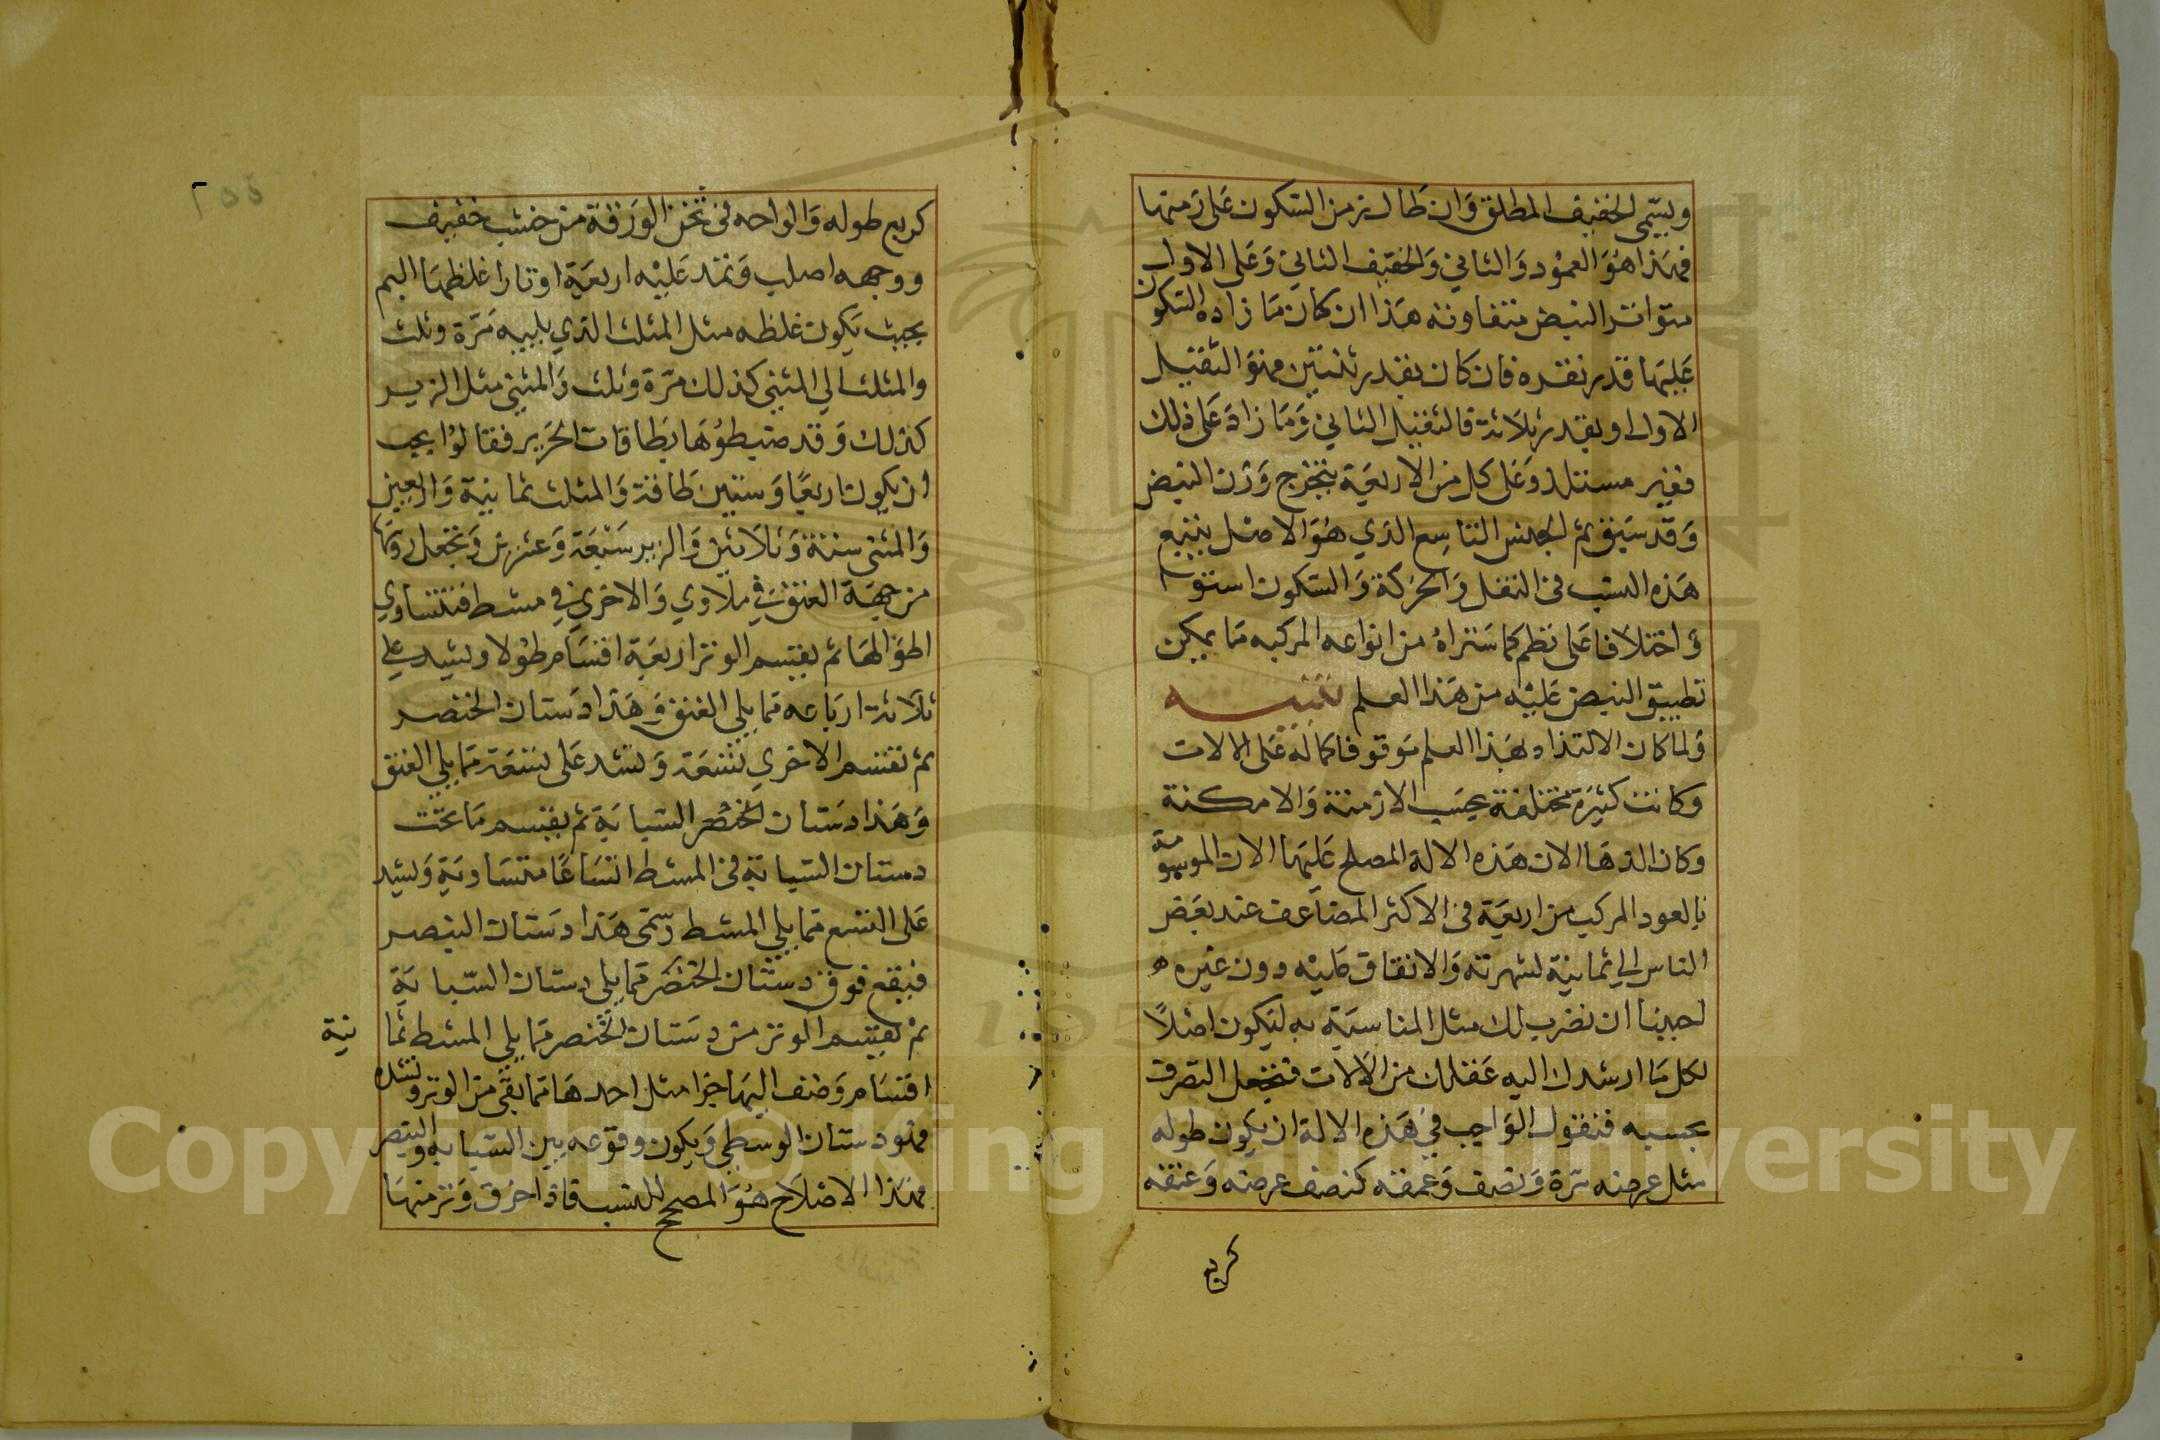 ويسمى الخفيف المطلق وان طال زمن السكون على زمنها
فهذا هو العمود والثاني والخفيف الثاني وعلى الاول
متواتر النبض متفاوته هذا ان كان ما زاده السكون
عليها قدر نقره فان كان بقدر ثنتين فهو الثقيل
الاول او بقدر ثلاثة فالثقيل الثاني وما زاد على ذلك
فغير مستلذ وعلى كل من الاربعة يتخرج وزن النبض
وقد سبق ثم الجنس التاسع الذي هو الاصل يتبع
هذه النسب في النقل والحركة والسكون استوا
واختلافا على نظم كما ستراه من انواعه المركبه مما يمكن
تطبيق النبض عليه من هذا العلم تنبيه
ولما كان الالتذاذ بهذا العلم موقوفا كماله على الالات
وكانت كثيرة مختلفة بحسب الازمنة والامكنة
وكان الذها الان هذه الالة المصلح عليها الان الموسومة
بالعود المركب من اربعة في الاكثر المضاعف عند بعض
الناس الي ثمانية لشهرته والاتفاق عليه دون غيره
احببنا ان نضرب لك مثل المناسبة به ليكون اصلاً
لكل ما ارشدك اليه عقلك من الالات فتجعل التصرف
بحسبه فنقول الواجب في هذه الالة ان يكون طوله
مثل عرضه مرة ونصف وعمقه كنصف عرضه وعنقه
كربع
كربع طوله والواحه في ثخن الورقة من خشب خفيف
ووجهه اصلب وتمد عليه اربعة اوتار اغلظها البم
بحيث يكون غلظه مثل المثلث الذي يليه مرة وثلث
والمثلث الي المثنى كذلك مرة وثلث والمثنى مثل الزير
كذلك وقد ضبطوها بطاقات الحرير فقالوا يجب
ان يكون اربعًا وستين طاقة والمثلث ثمانية واربعين
والمثنى ستة وثلاثين والزير سبعة وعشرين وتجعل روسها
من جهة العنق في ملاوي والاخرى في مشط فتتساوي
اطوالها ثم يقسم الوتر اربعة اقسام طولا ويشد على
ثلاثة ارباعه مما يلي العنق وهذا دستان الخنصر
ثم تقسم الاخري تسعة وتشد على تسعة مما يلي العنق
وهذا دستان الخنصر السبابة ثم يقسم ما تحت
دستان السبابة في المشط اتساعًا متساوية ويشد
على التسع مما يلي المشط وسمى هذا دستان البنصر
فيقع فوق دستان الخنصر مما يلي دستان السبابة
ثم يقسم الوتر من دستان الخنصر مما يلي المشط ثما نية
اقسام وضف اليها جزا مثل احدها مما بقى من الوتر وتشده
فهو دستان الوسطى ويكون وقوعه بين السبابة والبنصر
فهذا الاصلاح هو المصحح للنسب فاذا حزق وتر منها